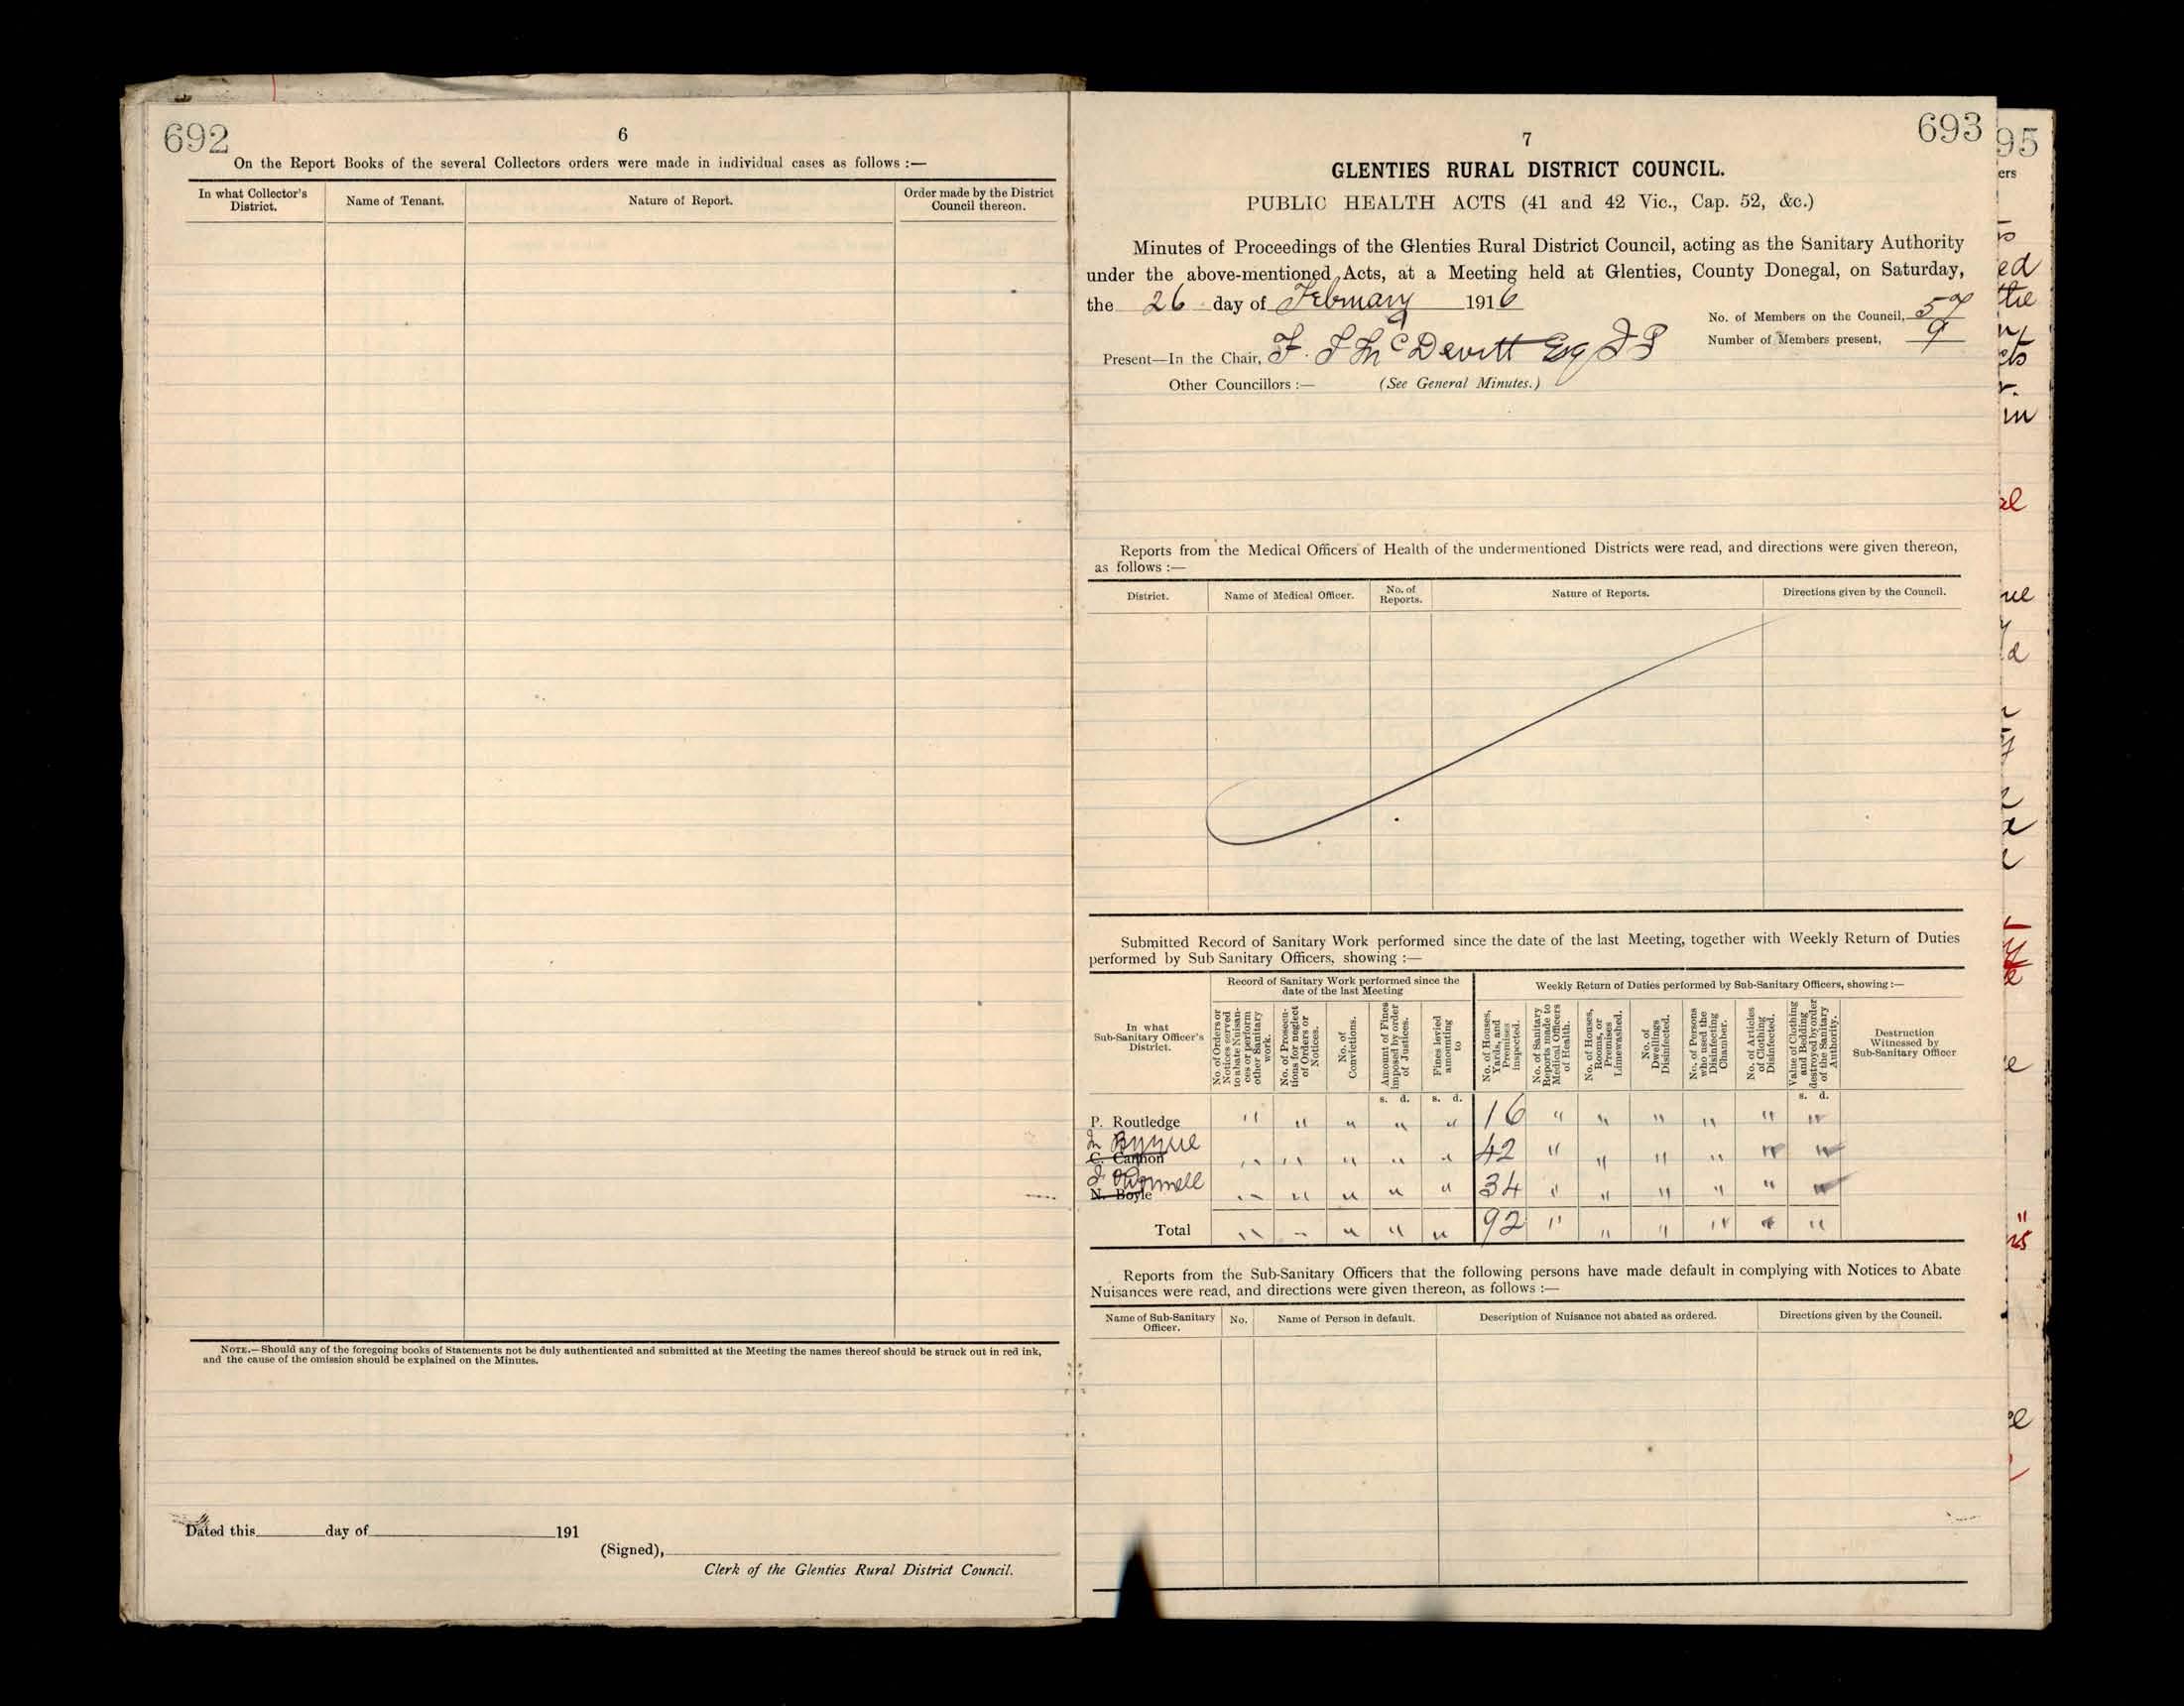 692
6
On the Report Books of the several Collectors orders were made in individual cases as follows :—
In what Collector's District.
Name of Tenant.
Nature of Report.
Order made by the District Council thereon.
NOTE.—Should any of the foregoing books of Statements not be duly authenticated and submitted at the Meeting the names thereof should be struck out in red ink,
and the cause of the omission should be explained on the Minutes.
Dated this day of 191
(Signed),
Clerk of the Glenties Rural District Council.
693
7
GLENTIES RURAL DISTRICT COUNCIL.
PUBLIC HEALTH ACTS (41 and 42 Vic., Cap. 52, &c.)
Minutes of Proceedings of the Glenties Rural District Council, acting as the Sanitary Authority
under the above-mentioned Acts, at a Meeting held at Glenties, County Donegal, on Saturday,
the 26 day of February 1916
No. of Members on the Council, 57
Number of Members present, 9
Present—In the Chair, F. J McDevitt Esq JP
Other Councillors :— (See General Minutes.)
Reports from the Medical Officers of Health of the undermentioned Districts were read, and directions were given thereon,
as follows :—
District.
Name of Medical Officer.
No. of Reports.
Nature of Reports.
Directions given by the Council.
Submitted Record of Sanitary Work performed since the date of the last Meeting, together with Weekly Return of Duties
performed by Sub Sanitary Officers, showing :—
Record of Sanitary Work performed since the
date of the last Meeting
Weekly Return of Duties performed by Sub-Sanitary Officers, showing :—
In what Sub-Sanitary Officer's District.
No. of Orders or Notices served to abate Nuisances or perform other Sanitary work.
No. of Prosecutions for neglect of Orders or Notices.
No. of Convictions.
Amount of Fines imposed by order of Justices.
Fines levied amounting to
No. of Houses, Yards, and Premises inspected.
No. of Sanitary Reports made to Medical Officers of Health.
No. of Houses, Rooms, or Premises Limewashed.
No. of Dwellings Disinfected.
No. of Persons who used the Disinfecting Chamber.
No. of Articles of Clothing Disinfected.
Value of Clothing and Bedding destroyed by order of the Sanitary Authority.
Destruction Witnessed by Sub-Sanitary Officer
s. d. s. d. s. d.
P. Routledge " " " " " 16 " " " " " "
M Byrne
C. Cannon " " " " " 42 " " " " " "
J. O'Donnell
N. Boyle " " " " " 34 " " " " " "
Total " " " " " 92 " " " " " "
Reports from the Sub-Sanitary Officers that the following persons have made default in complying with Notices to Abate
Nuisances were read, and directions were given thereon, as follows :—
Name of Sub-Sanitary Officer.
No.
Name of Person in default.
Description of Nuisance not abated as ordered.
Directions given by the Council.
95
ers